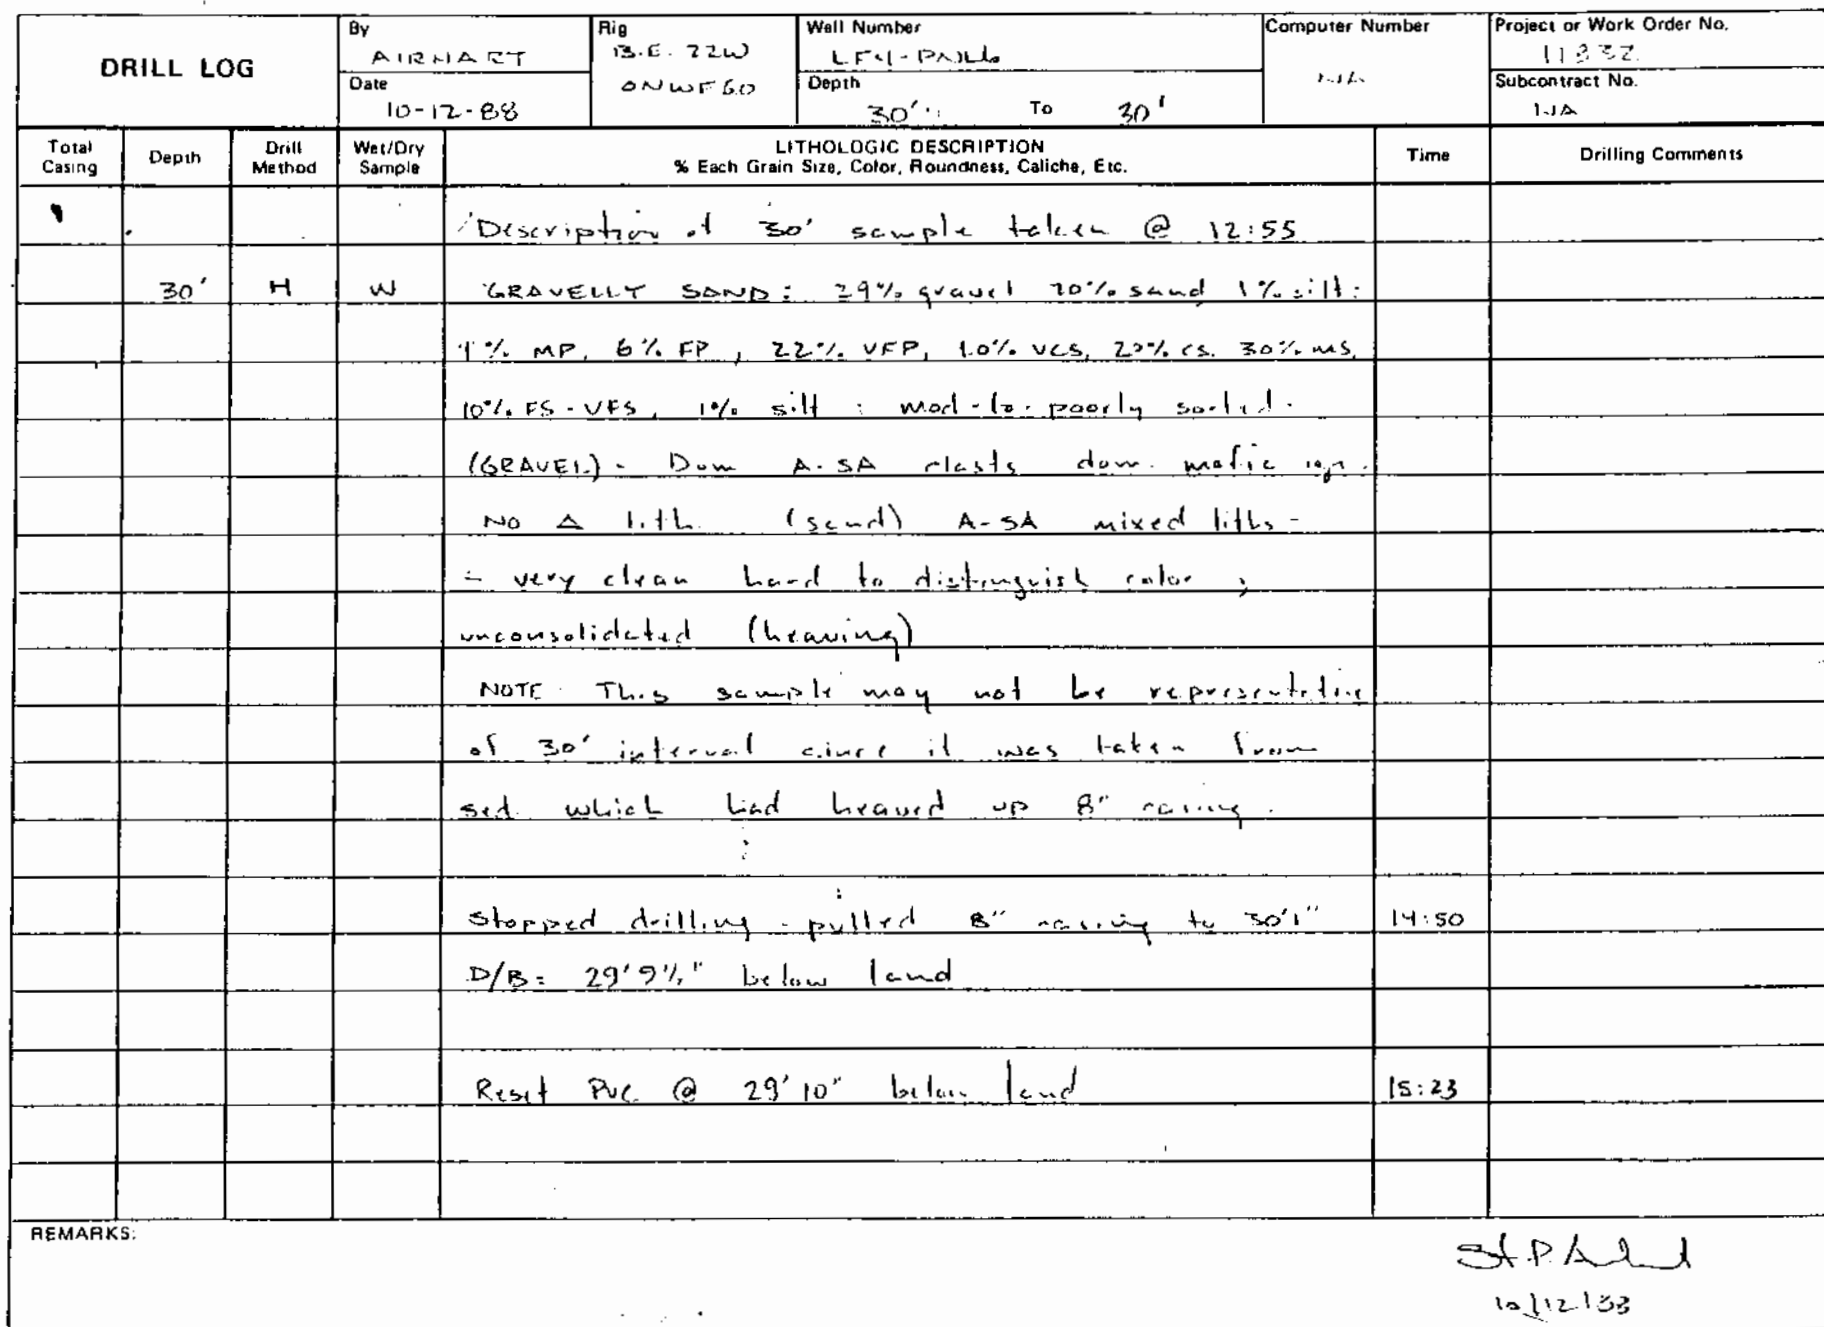 DRILL LOG
By
AIRHART
Date
10-12-88
Rig
B.E. 22W
ONWFGO
Well Number
Depth
30' To 30'
Computer Number
N/A
Project or Work Order No.
11832
Subcontract No.
NA
Total Casing
Depth
Drill Method
Wet/Dry Sample
LITHOLOGIC DESCRIPTION
% Each Grain Size, Color, Roundness, Caliche, Etc.
Time
Drilling Comments
Description of 30' sample taken @ 12:55
30' H W GRAVELLY SAND: 29% gravel 70% sand 1% silt:
1% MP, 6% FP, 22% VFP, 10% VCS, 20% CS. 30% MS,
10% FS-VFS, 1% silt; mod-to-poorly sorted.
(GRAVEL)- Dom A-SA clasts dom. mafic ign.
NO Δ lith. (sand) A-SA mixed liths -
- very clean hard to distinguish color;
unconsolidated (heaving)
NOTE This sample may not be representative
of 30' interval since it was taken from
sed. which had heaved up 8" casing.
Stopped drilling - pulled 8" casing to 30'1" 14:50
D/B: below land
Reset PVC @ 29'10" below land 15:23
REMARKS: